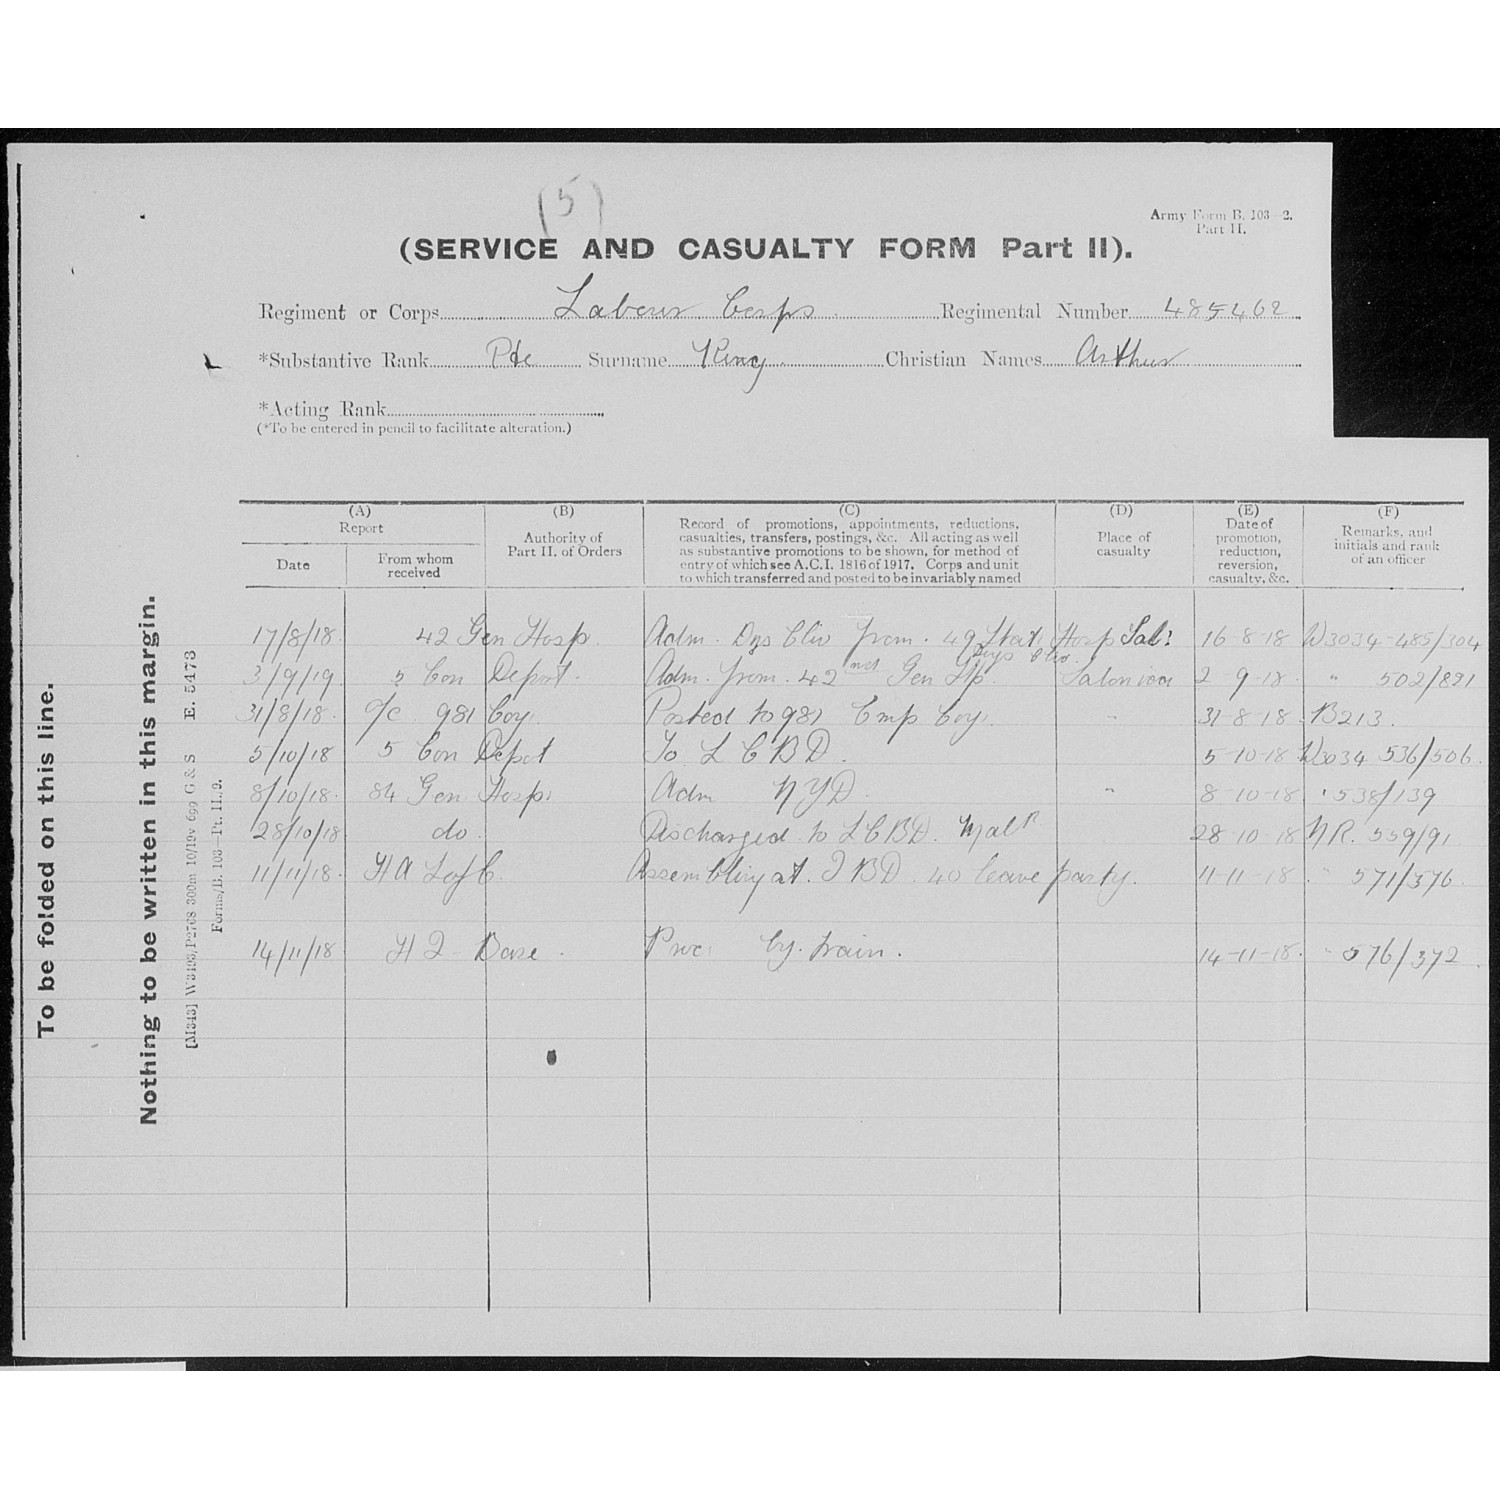 (5)
Army Form B. 103—2.
Part II.
(SERVICE AND CASUALTY FORM Part II).
Regiment or Corps Labour Corps Regimental Number 485462
*Substantive Rank Pte Surname King Christian Names Arthur
*Acting Rank
(*To be entered in pencil to facilitate alteration.)
(A) Report
Date
From whom received
(B)
Authority of Part II. of Orders
(C)
Record of promotions, appointments, reductions,
casualties, transfers, postings, &c. All acting as well
as substantive promotions to be shown, for method of
entry of which see A.C.I. 1816 of 1917. Corps and unit
to which transferred and posted to be invariably named
(D)
Place of casualty
(E)
Date of promotion, reduction, reversion, casualty, &c.
(F)
Remarks, and initials and rank of an officer
17/8/18 42 Gen Hosp. Adm. Dys Clin from 49 Stat. Hosp Sal: 16-8-18 W3034-485/304
Dys Clin
3/9/19 5 Con Depot. Adm. from 42 Gen Hp. Salonica 2-9-18 " 502/821
31/8/18 o/c 981 Coy. Posted to 981 Emp Coy. " 31-8-18 B213.
5/10/18 5 Con Depot To L C B D. 5-10-18 W3034 536/506
8/10/18 84 Gen Hosp. Adm NYD " 8-10-18 " 538/139
28/10/18 do. Discharged to L C B D. 28-10-18 NR. 559/91
11/11/18 Assembling at I B D 40 leave party. 11-11-18 " 571/376
14/11/18 H Q Base. by train. 14-11-18 " 576/372
To be folded on this line.
Nothing to be written in this margin.
E. 5473
[M343] W3493/P2768 300m 10/19v 699 G & S
Forms/B. 103—Pt. II./2.